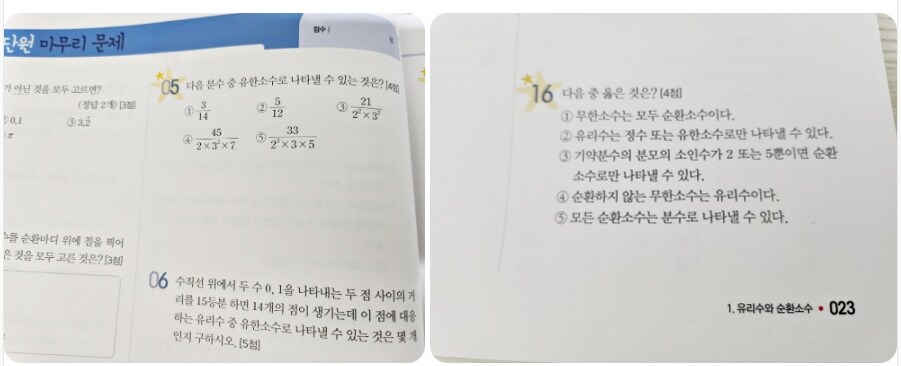 단원 마무리 문제
점수 |
가 아닌 것을 모두 고르면?
(정답 2개) [3점]
② 0.1
③ 3.2̇
π
수를 순환마디 위에 점을 찍어
은 것을 모두 고른 것은? [3점]
05 다음 분수 중 유한소수로 나타낼 수 있는 것은? [4점]
① 3/14
② 5/12
③ 21/(2²×3²)
④ 45/(2×3²×7)
⑤ 33/(2²×3×5)
06 수직선 위에서 두 수 0, 1을 나타내는 두 점 사이의 거
리를 15등분 하면 14개의 점이 생기는데 이 점에 대응
하는 유리수 중 유한소수로 나타낼 수 있는 것은 몇 개
인지 구하시오. [5점]
16 다음 중 옳은 것은? [4점]
① 무한소수는 모두 순환소수이다.
② 유리수는 정수 또는 유한소수로만 나타낼 수 있다.
③ 기약분수의 분모의 소인수가 2 또는 5뿐이면 순환
소수로만 나타낼 수 있다.
④ 순환하지 않는 무한소수는 유리수이다.
⑤ 모든 순환소수는 분수로 나타낼 수 있다.
1. 유리수와 순환소수 • 023